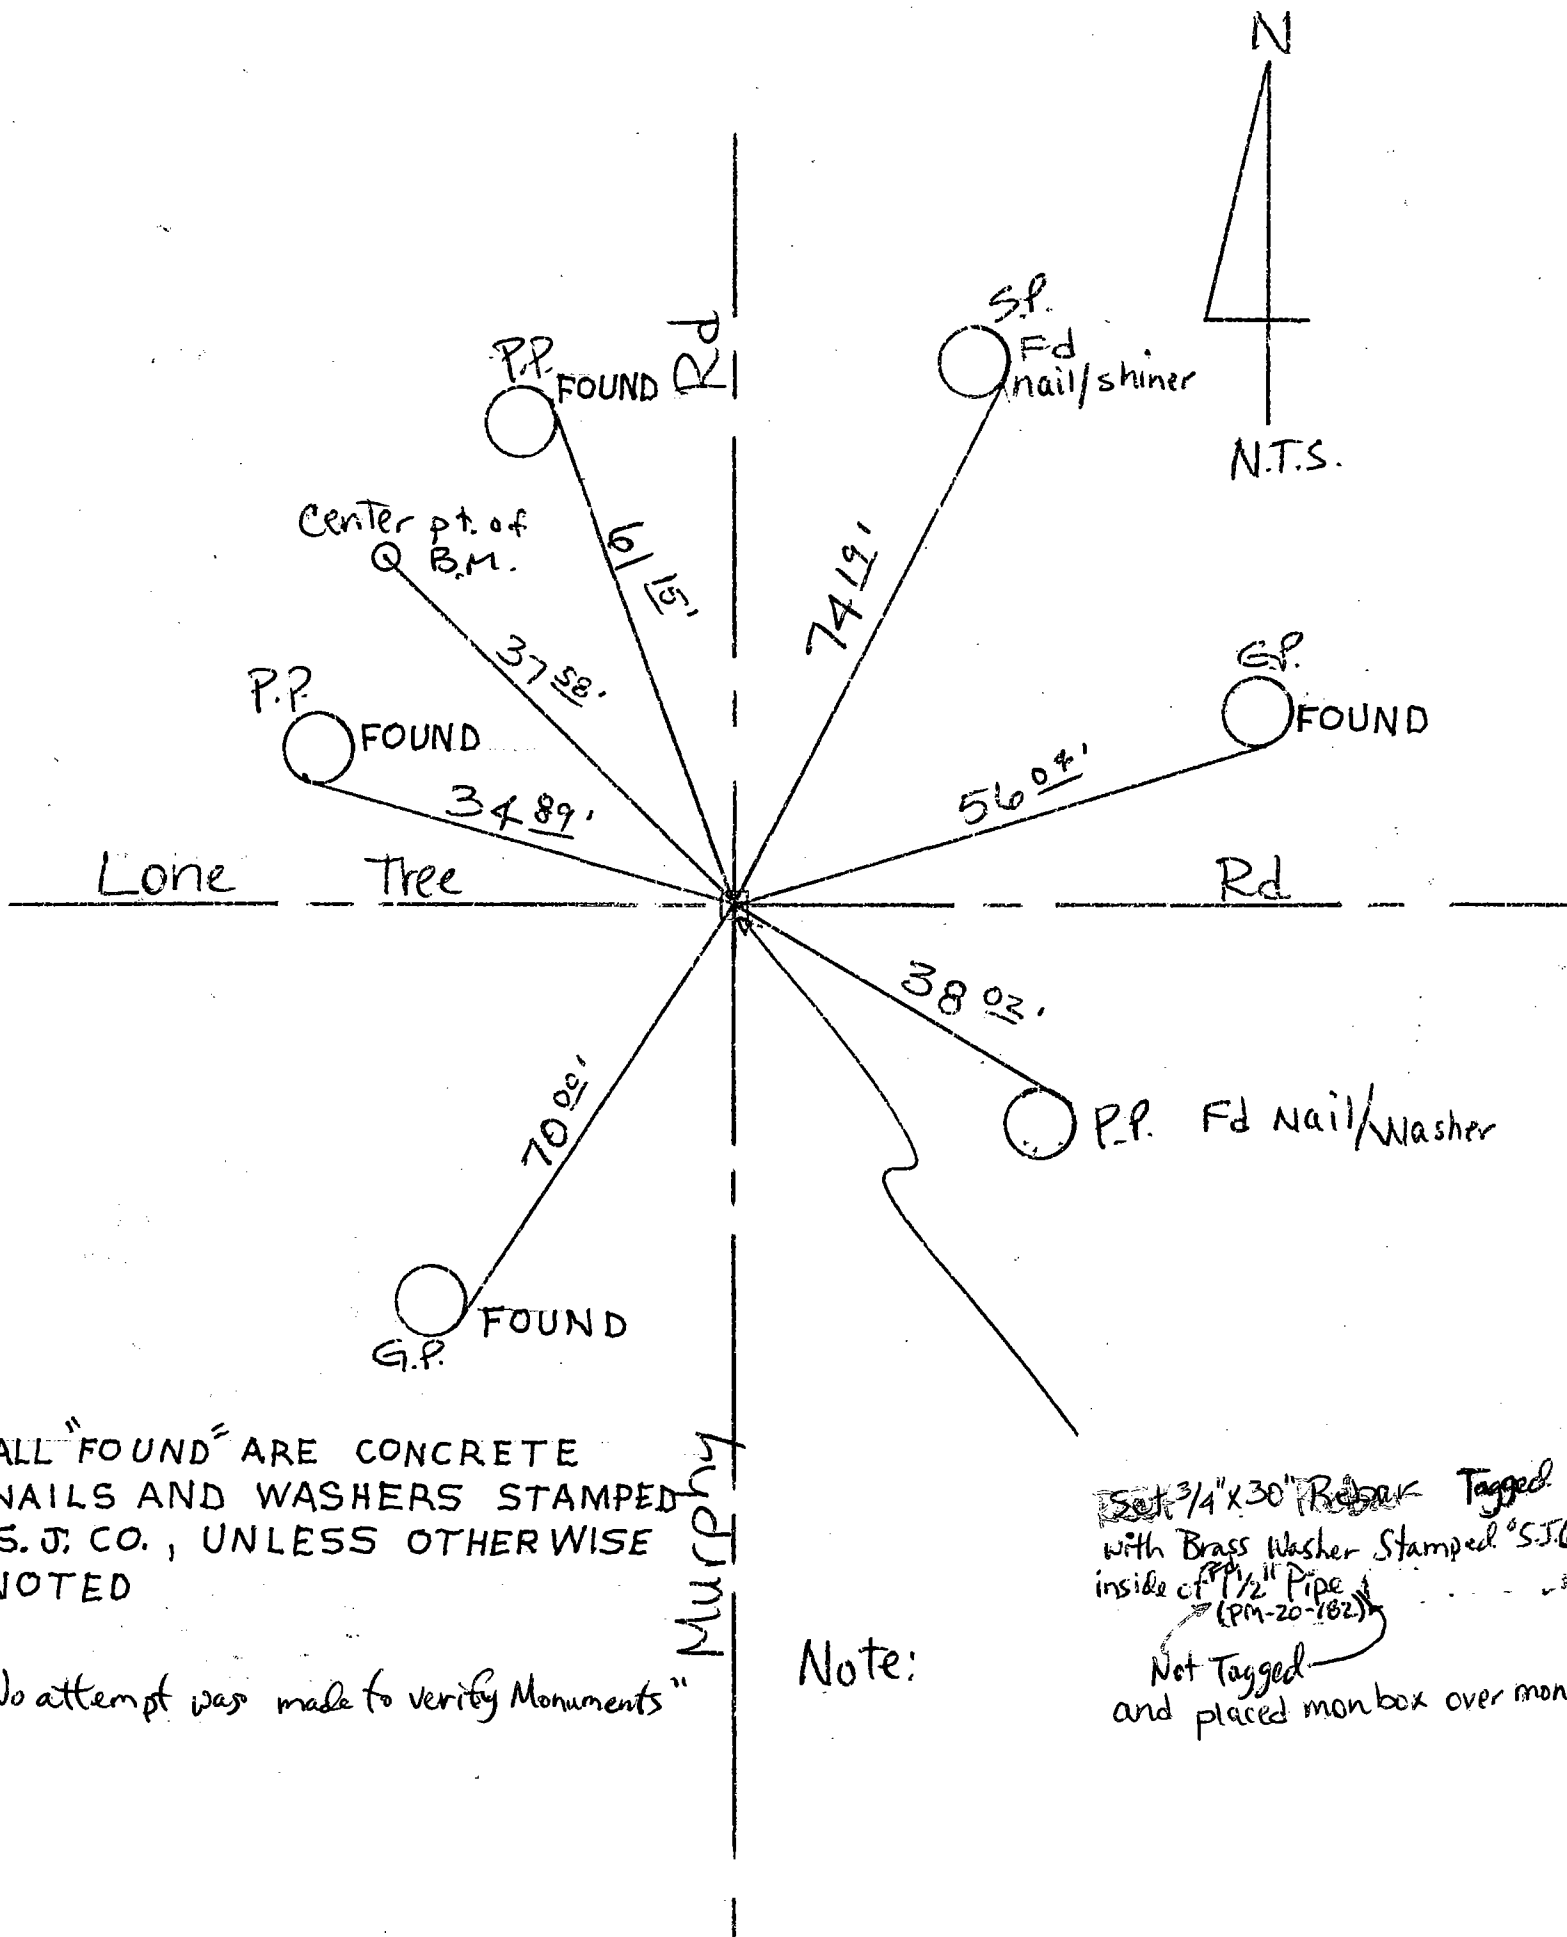 N
N.T.S.
S.P.
Fd
nail/shiner
P.P.
FOUND
Rd
Center pt. of
B.M.
61 15'
74 19'
37 58'
G.P.
FOUND
P.P.
FOUND
34 89'
56 04'
Lone Tree Rd
38 02'
P.P. Fd Nail/Washer
70 00'
FOUND
G.P.
Murphy
ALL "FOUND" ARE CONCRETE
NAILS AND WASHERS STAMPED
S.J. CO., UNLESS OTHERWISE
NOTED
No attempt was made to verify Monuments"
Note:
Set 3/4" X 30" Rebar Tagged
with Brass Washer Stamped "S.J.C
inside of Fd 1 1/2" Pipe
(PM-20-182)
Not Tagged
and placed mon box over mon